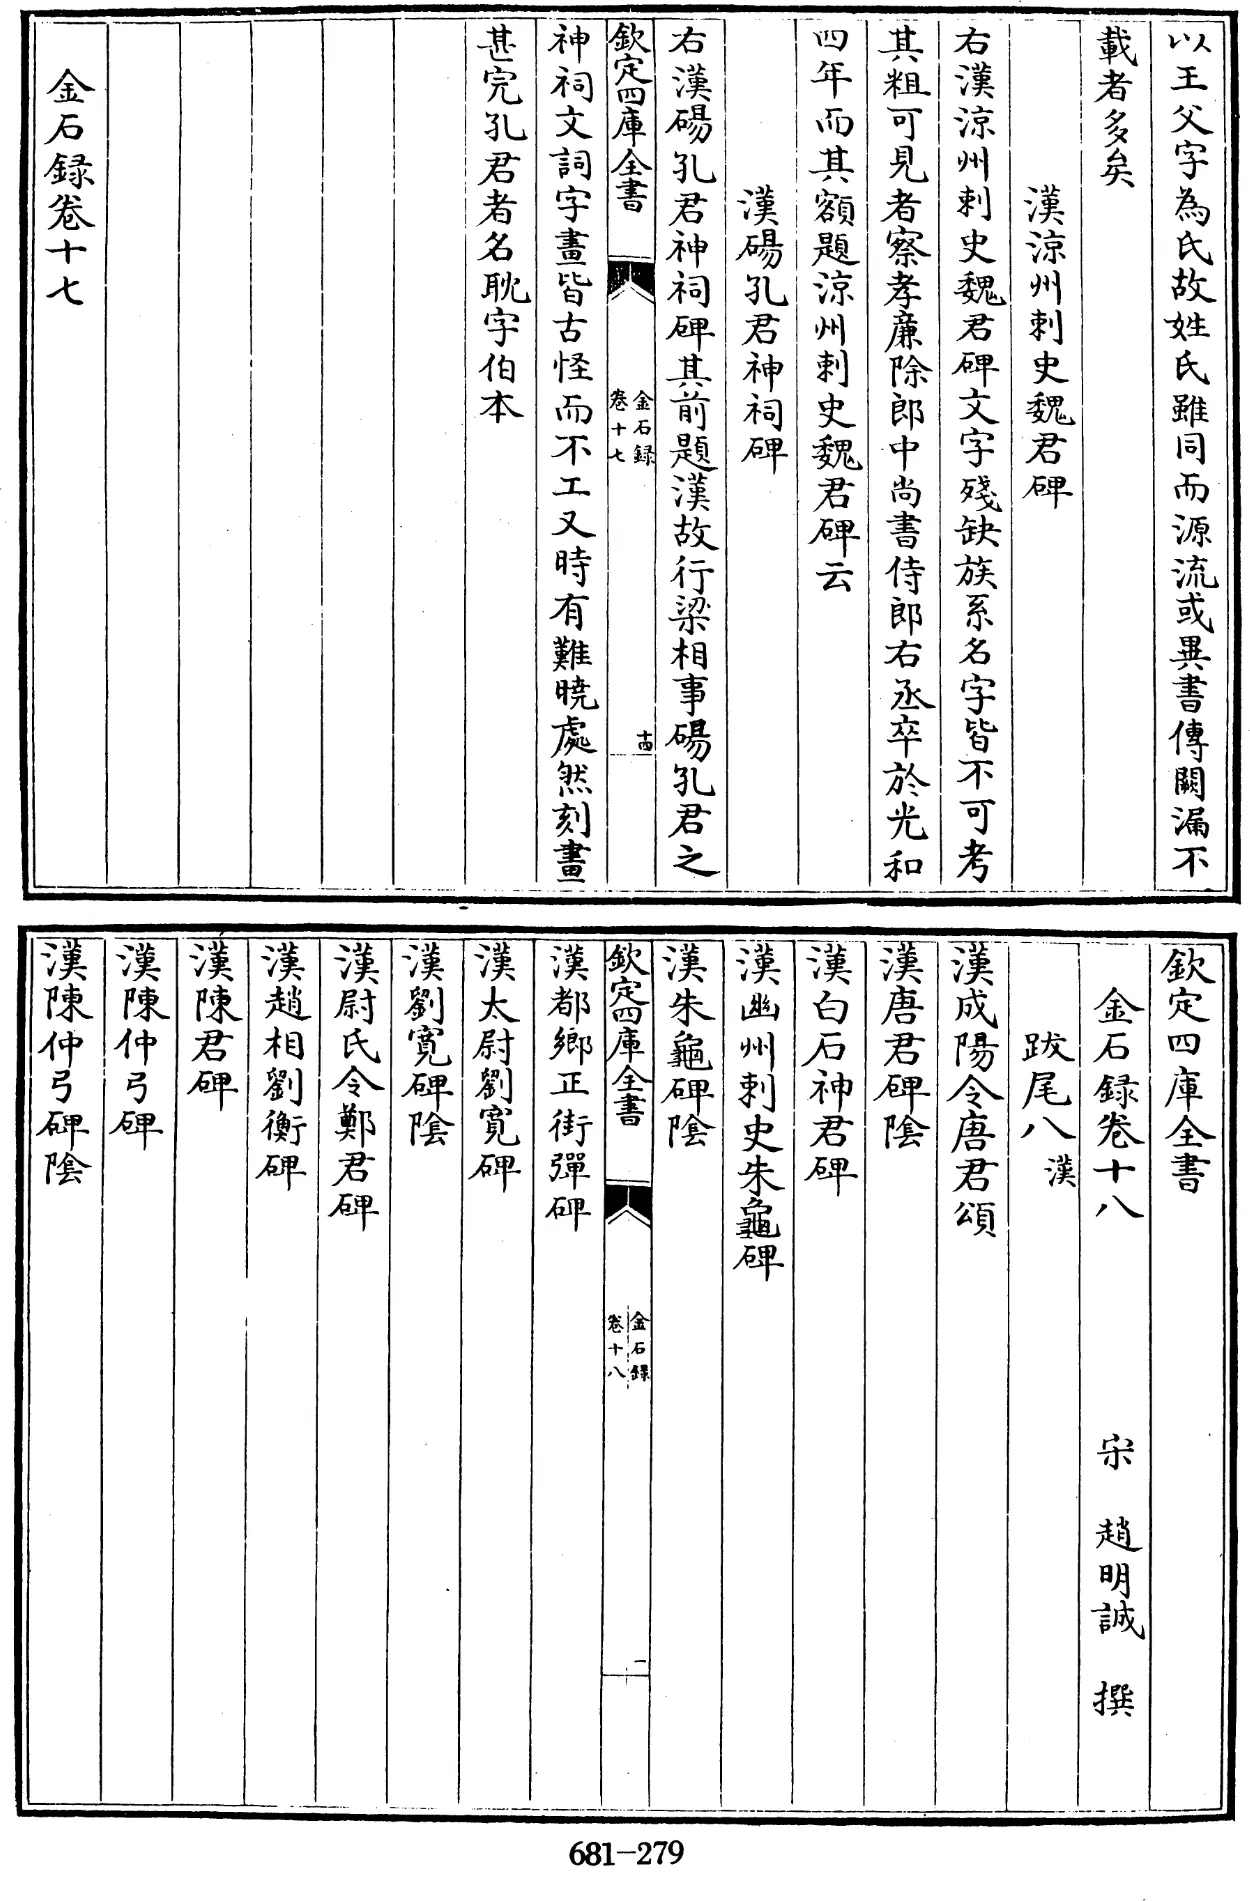 以王父字為氏故姓氏雖同而源流或異書傳闕漏不
載者多矣
漢涼州刺史魏君碑
右漢涼州刺史魏君碑文字殘缺族系名字皆不可考
其粗可見者察孝廉除郎中尚書侍郎右丞卒於光和
四年而其額題涼州刺史魏君碑云
漢碭孔君神祠碑
右漢碭孔君神祠碑其前題漢故行梁相事碭孔君之
欽定四庫全書
金石録
卷十七
十四
神祠文詞字畫皆古怪而不工又時有難曉處然刻畫
甚完孔君者名耽字伯本
金石録卷十七
欽定四庫全書
金石録卷十八
宋 趙明誠 撰
跋尾八 漢
漢成陽令唐君頌
漢唐君碑隂
漢白石神君碑
漢幽州刺史朱龜碑
漢朱龜碑隂
欽定四庫全書
金石録
卷十八
一
漢都鄉正街彈碑
漢太尉劉寬碑
漢劉寬碑隂
漢尉氏令鄭君碑
漢趙相劉衡碑
漢陳君碑
漢陳仲弓碑
漢陳仲弓碑隂
681-279